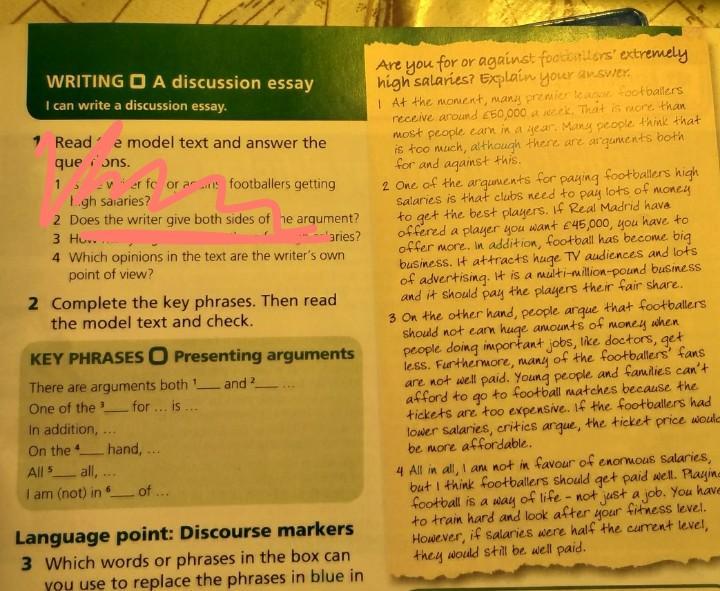 WRITING A discussion essay
I can write a discussion essay.
1 Read model text and answer the
questions.
1 for or footballers getting
high salaries?
2 Does the writer give both sides of the argument?
3
4 Which opinions in the text are the writer's own
point of view?
2 Complete the key phrases. Then read
the model text and check.
KEY PHRASES Presenting arguments
There are arguments both 1___ and 2___ ...
One of the 3___ for ... is ...
In addition, ...
On the 4___ hand, ...
All 5___ all, ...
I am (not) in 6___ of ...
Language point: Discourse markers
3 Which words or phrases in the box can
you use to replace the phrases in blue in
Are you for or against footballers' extremely
high salaries? Explain your answer.
1 At the moment, many premier league footballers
receive around £60,000 a week. That is more than
most people earn in a year. Many people think that
is too much, although there are arguments both
for and against this.
2 One of the arguments for paying footballers high
salaries is that clubs need to pay lots of money
to get the best players. If Real Madrid have
offered a player you want £45,000, you have to
offer more. In addition, football has become big
business. It attracts huge TV audiences and lots
of advertising. It is a multi-million-pound business
and it should pay the players their fair share.
3 On the other hand, people argue that footballers
should not earn huge amounts of money when
people doing important jobs, like doctors, get
less. Furthermore, many of the footballers' fans
are not well paid. Young people and families can't
afford to go to football matches because the
tickets are too expensive. If the footballers had
lower salaries, critics argue, the ticket price would
be more affordable.
4 All in all, I am not in favour of enormous salaries,
but I think footballers should get paid well. Playing
football is a way of life – not just a job. You have
to train hard and look after your fitness level.
However, if salaries were half the current level,
they would still be well paid.